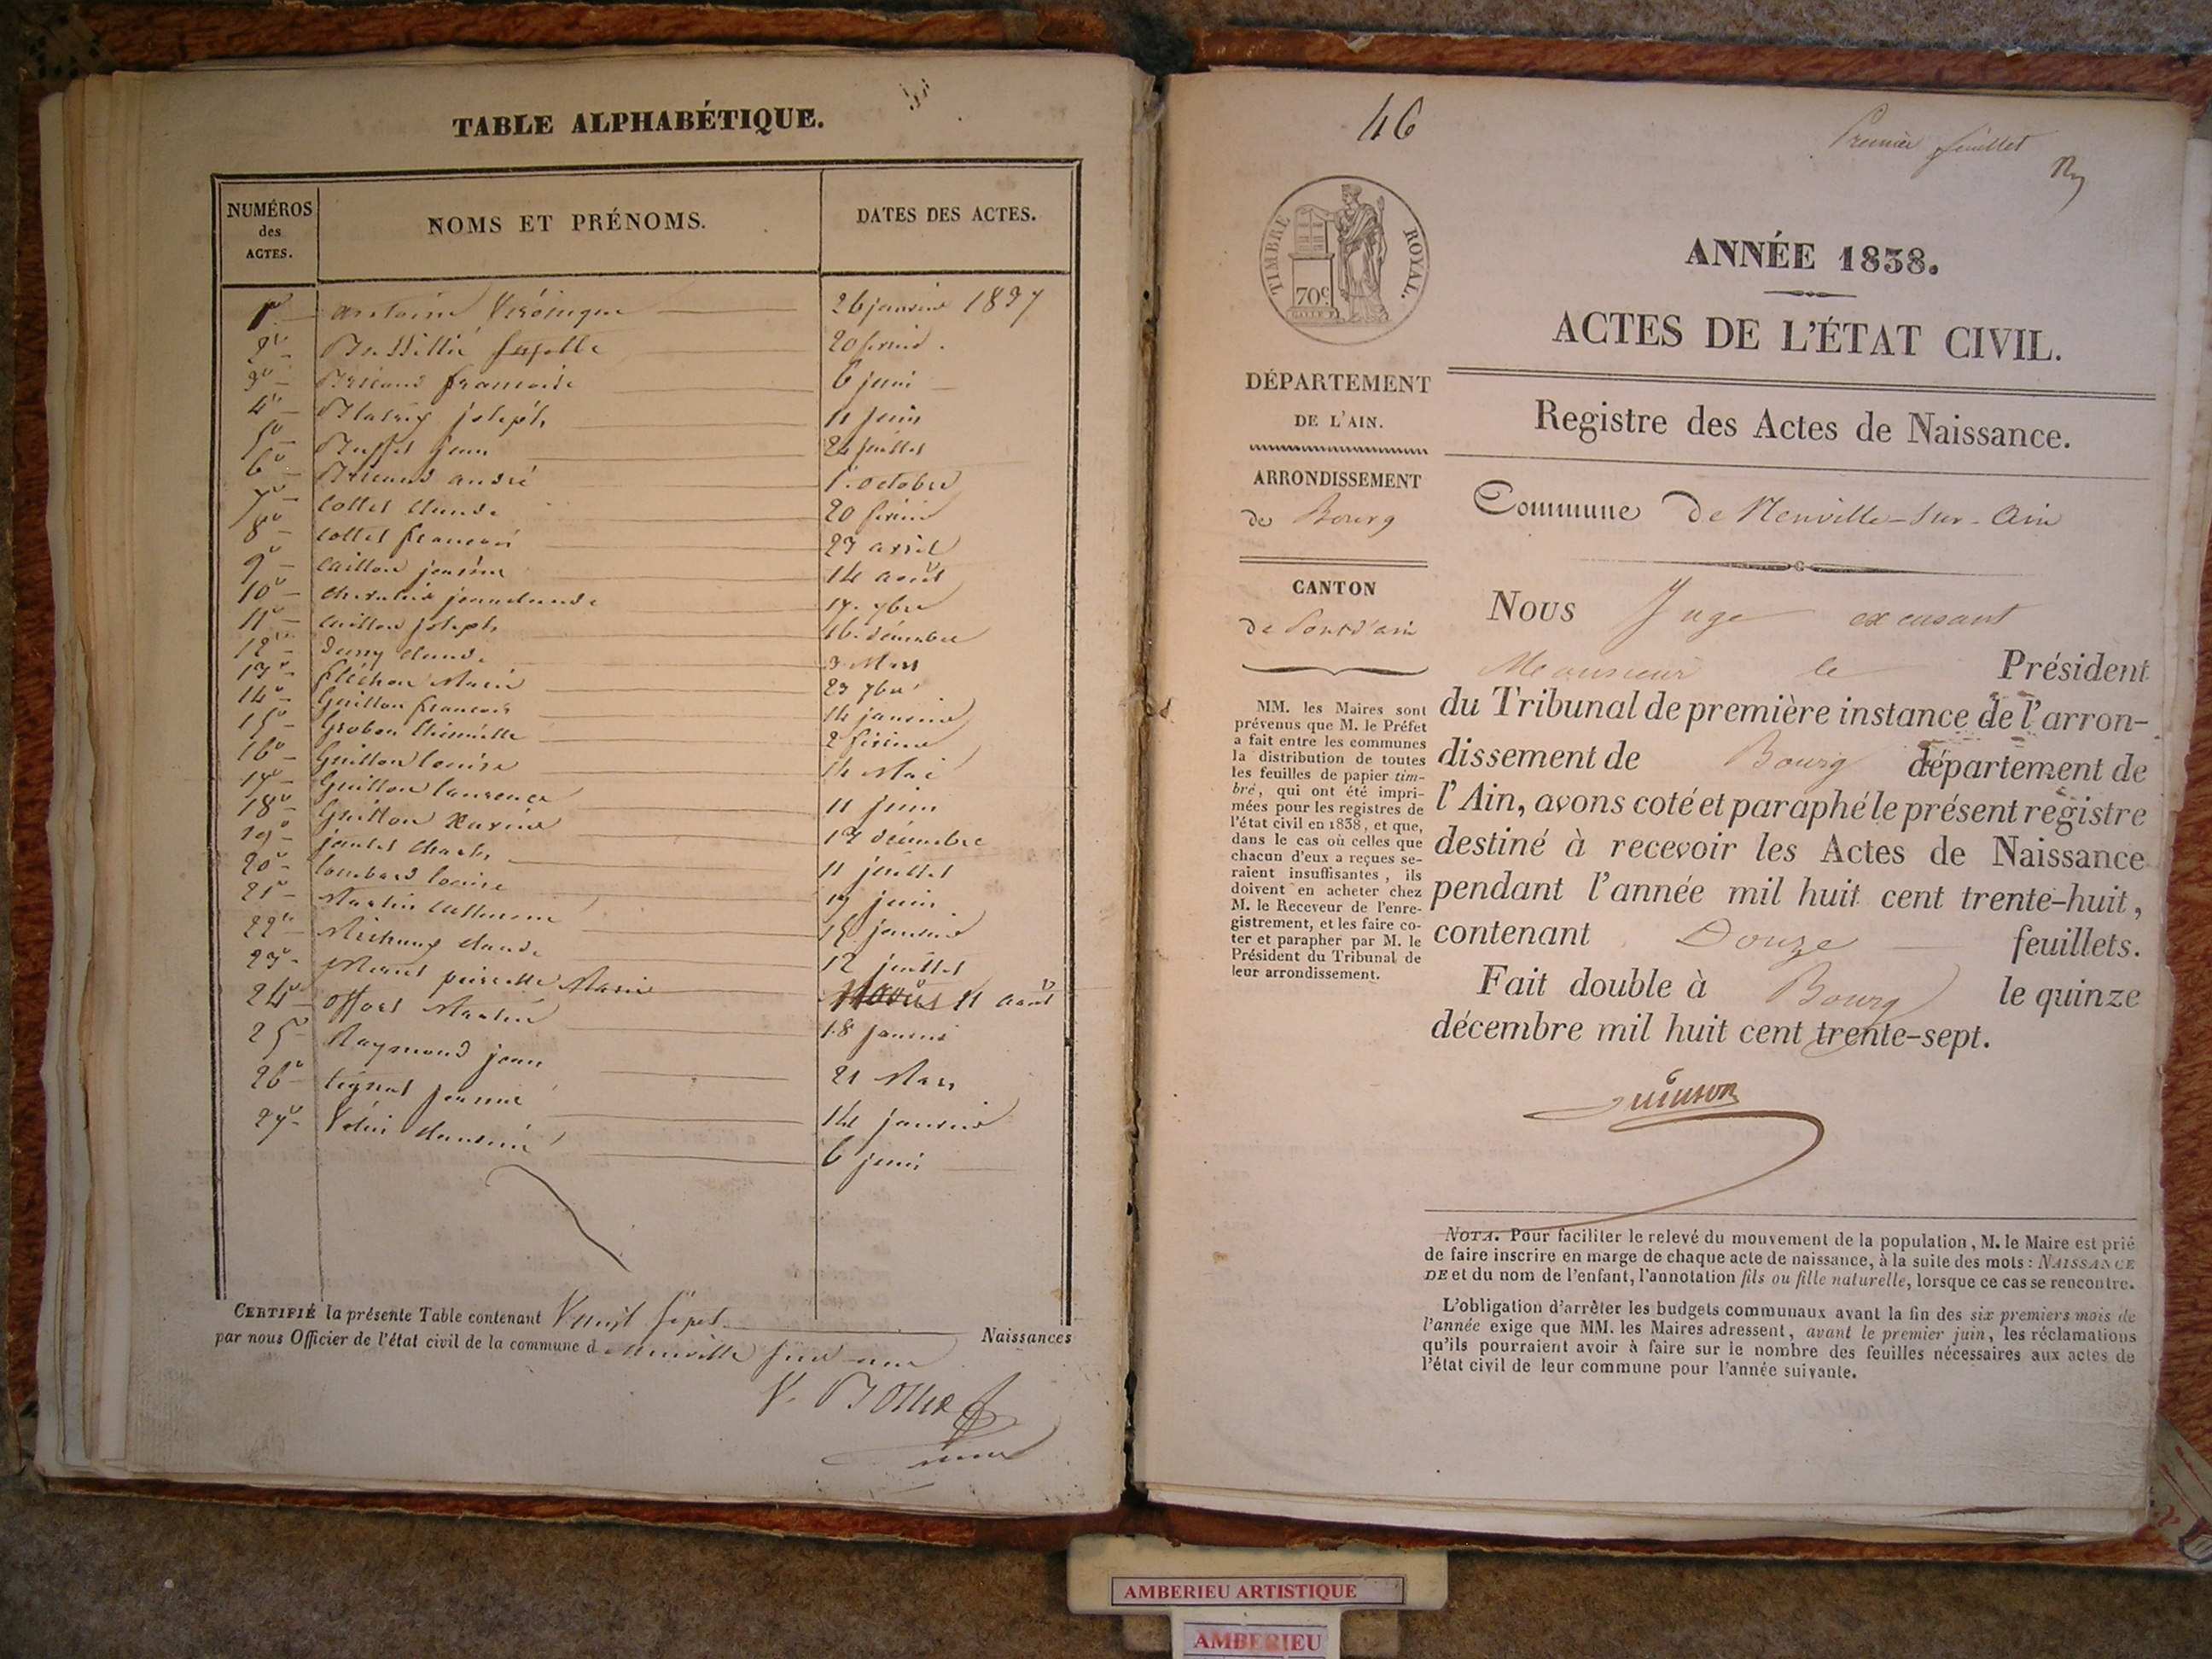 TABLE ALPHABÉTIQUE.
NUMÉROS des ACTES.
NOMS ET PRÉNOMS.
DATES DES ACTES.
1er antoine Véronique 26 janvier 1837
2e 20 février
3e Briand francoise 6 juin
4e joseph 11 juin
5e Buffet jean 24 juillet
6e Briand andré 1er octobre
7e Collet Claude 20 février
8e Collet francois 27 avril
9e Caillon 14 août
10e Chevalier jeanclaude 17 7bre
11e Caillon joseph 16 décembre
12e Claude 3 Mars
13e Marie 23 7bre
14e Guillon francois 14 janvier
15e Grobon 2 février
16e Guillon louise 14 Mai
17e Guillon laurence 11 juin
18e Guillon 17 décembre
19e Charles 11 juillet
20e lombard louise 19 juin
21e Martin Catherine 15 janvier
22e Claude 12 juillet
23e pierrette Marie 11 août
24e 18 janvier
25e Raymond jean 21 Mars
26e tignat jeanne 14 janvier
27e 6 juin
CERTIFIÉ la présente Table contenant Vingt sept Naissances
par nous Officier de l'état civil de la commune d neuville sur ain
46
Premier feuillet
TIMBRE ROYAL.
70c.
ANNÉE 1838.
ACTES DE L'ÉTAT CIVIL.
DÉPARTEMENT
DE L'AIN.
Registre des Actes de Naissance.
ARRONDISSEMENT
de Bourg
Commune De Neuville-Sur-Ain
CANTON
de Pont d'ain
MM. les Maires sont
prévenus que M. le Préfet
a fait entre les communes
la distribution de toutes
les feuilles de papier tim-
bré, qui ont été impri-
mées pour les registres de
l'état civil en 1838, et que,
dans le cas où celles que
chacun d'eux a reçues se-
raient insuffisantes, ils
doivent en acheter chez
M. le Receveur de l'enre-
gistrement, et les faire co-
ter et parapher par M. le
Président du Tribunal de
leur arrondissement.
Nous Juge excusant
Monsieur le Président
du Tribunal de première instance de l'arron-
dissement de Bourg département de
l'Ain, avons coté et paraphé le présent registre
destiné à recevoir les Actes de Naissance
pendant l'année mil huit cent trente-huit,
contenant Douze feuillets.
Fait double à Bourg le quinze
décembre mil huit cent trente-sept.
NOTA. Pour faciliter le relevé du mouvement de la population, M. le Maire est prié
de faire inscrire en marge de chaque acte de naissance, à la suite des mots : NAISSANCE
DE et du nom de l'enfant, l'annotation fils ou fille naturelle, lorsque ce cas se rencontre.
L'obligation d'arrêter les budgets communaux avant la fin des six premiers mois de
l'année exige que MM. les Maires adressent, avant le premier juin, les réclamations
qu'ils pourraient avoir à faire sur le nombre des feuilles nécessaires aux actes de
l'état civil de leur commune pour l'année suivante.
AMBERIEU ARTISTIQUE
AMBERIEU